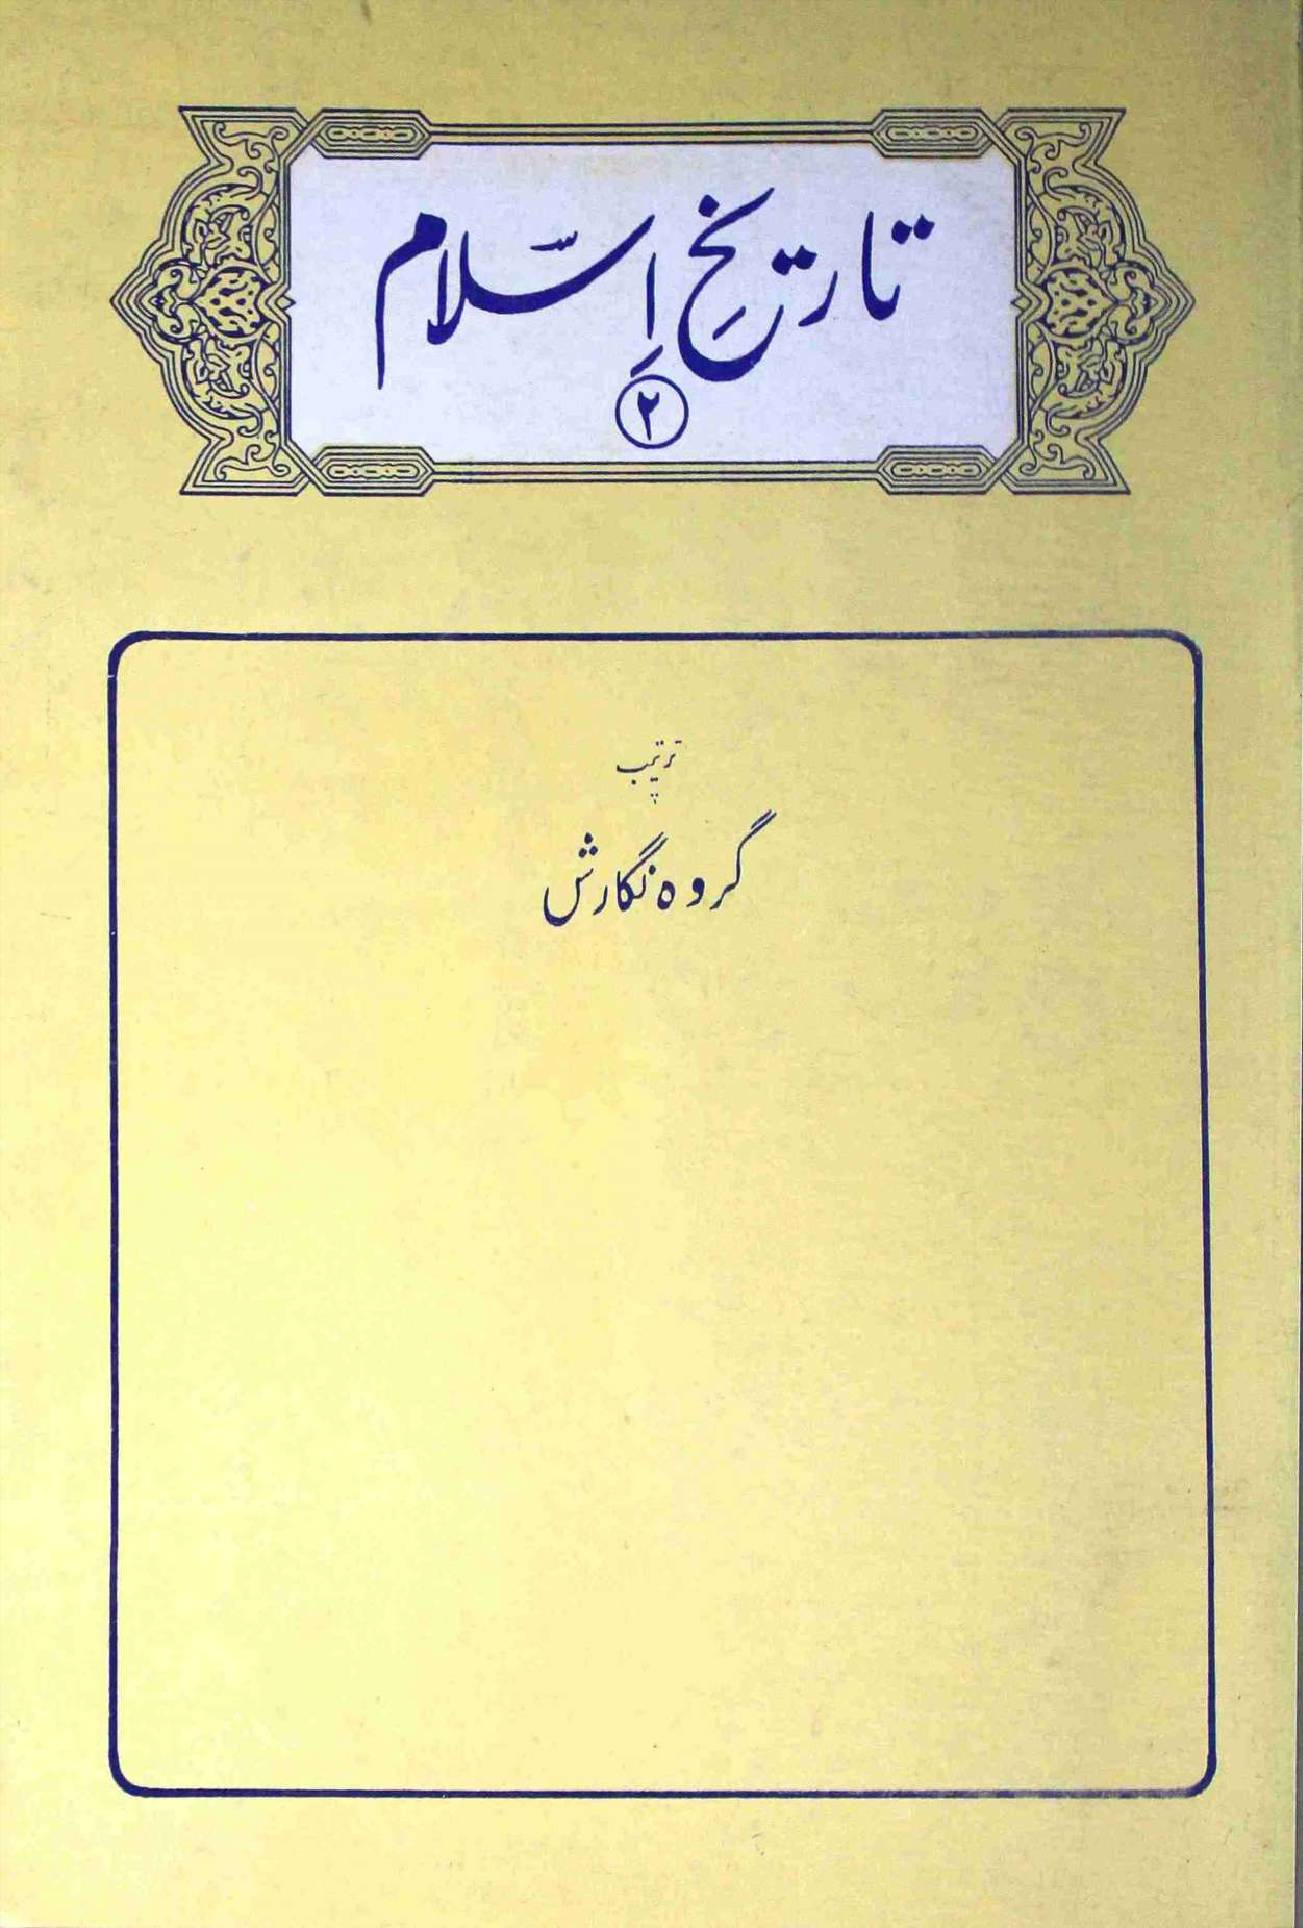 تاریخِ اسّلام
۲
ترتیب
گروہ نگارش